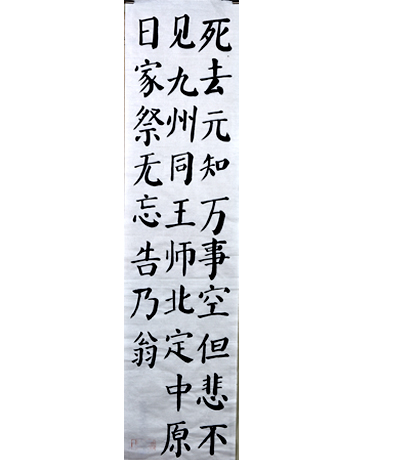 死去元知万事空但悲不
见九州同王师北定中原
日家祭无忘告乃翁